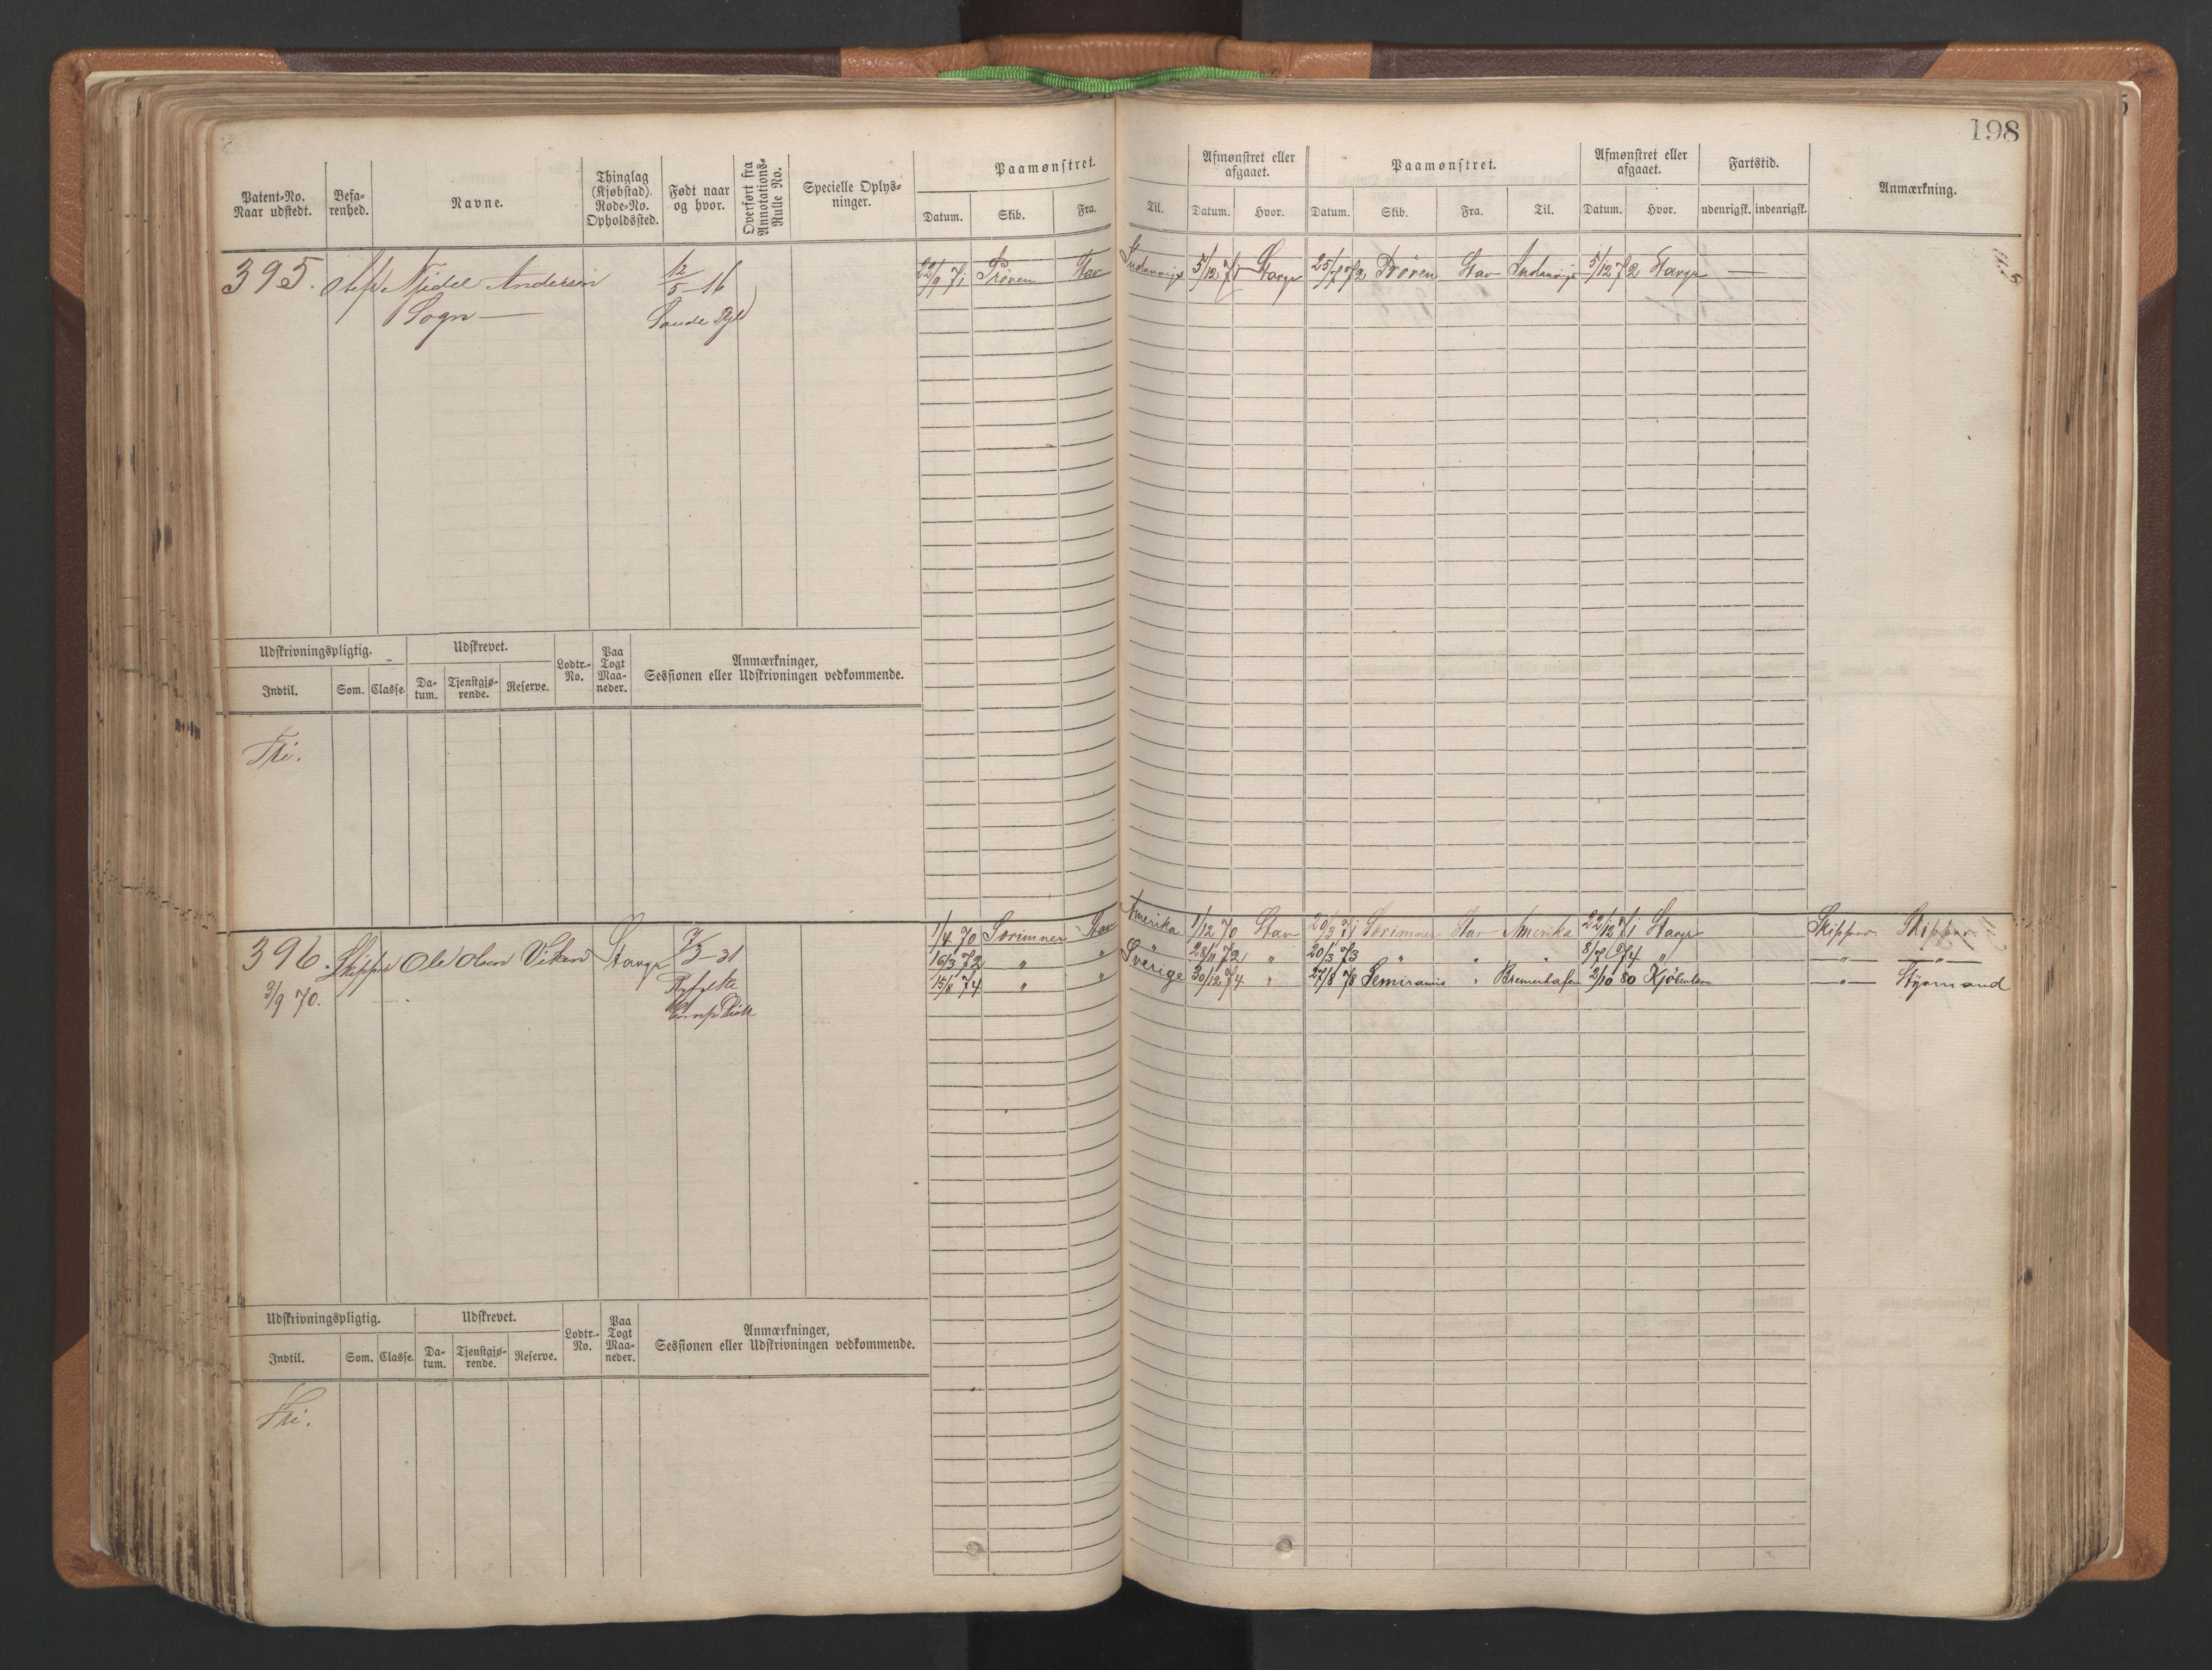 198
Patent-No. Naar udstedt. Befa-renhed. Navne. Thinglag (Kjøbstad). Rode-No. Opholdssted. Født naar og hvor. Overført fra Annotations-Rulle No. Specielle Oplys-ninger. Paamønstret. Afmønstret eller afgaaet. Paamønstret. Afmønstret eller afgaaet. Fartstid. Anmærkning.
Datum. Skib. Fra. Til. Datum. Hvor. Datum. Skib. Fra. Til. Datum. Hvor. udenrigsk. indenrigsk.
395. Andersen 12/5-16 22/9 71 Prøven Stav Indenrigs 5/12 71 Stavgr 25/7 72 Prøven Stav Indenrigs 5/12 72 Stavgr —
Sogn — Sande
Udskrivningspligtig. Udskrevet. Lodtr.-No. Paa Togt Maa-neder. Anmærkninger, Sessionen eller Udskrivningen vedkommende.
Indtil. Som. Classe. Da-tum. Tjenstgjø-rende. Reserve.
Fri.
396. Skipper Ole Olsen Viken Stavgr 7/3-31 1/4 70 Sørimner Stav Amerika 1/12 70 Stav 20/3 71 Sørimner Stav Amerika 22/12 71 Stavgr Skipper. Skipper.
3/9 70. Ryfylke 16/3 72 " " " 28/11 72 " 20/3 73 " " " 8/7 74 " —"— —"—
15/8 74 " " Sverige 30/12 74 " 27/8 78 Semiramis " Bremerhafen 2/10 80 Kjøbenhavn —"— Styrmand
Udskrivningspligtig. Udskrevet. Lodtr.-No. Paa Togt Maa-neder. Anmærkninger, Sessionen eller Udskrivningen vedkommende.
Indtil. Som. Classe. Da-tum. Tjenstgjø-rende. Reserve.
Fri.